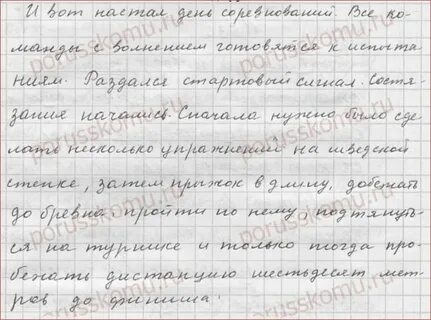 И вот настал день соревнований. Все ко-
манды с волнением готовятся к испыта-
ниям. Раздался стартовый сигнал. Состя-
зания начались. Сначала нужно было сде-
лать несколько упражнений на шведской
стенке, затем прыжок в длину, добежать
до бревна, пройти по нему, подтянуть-
ся на турнике и только тогда про-
бежать дистанцию шестьдесят мет-
ров до финиша.
porusskomu.ru